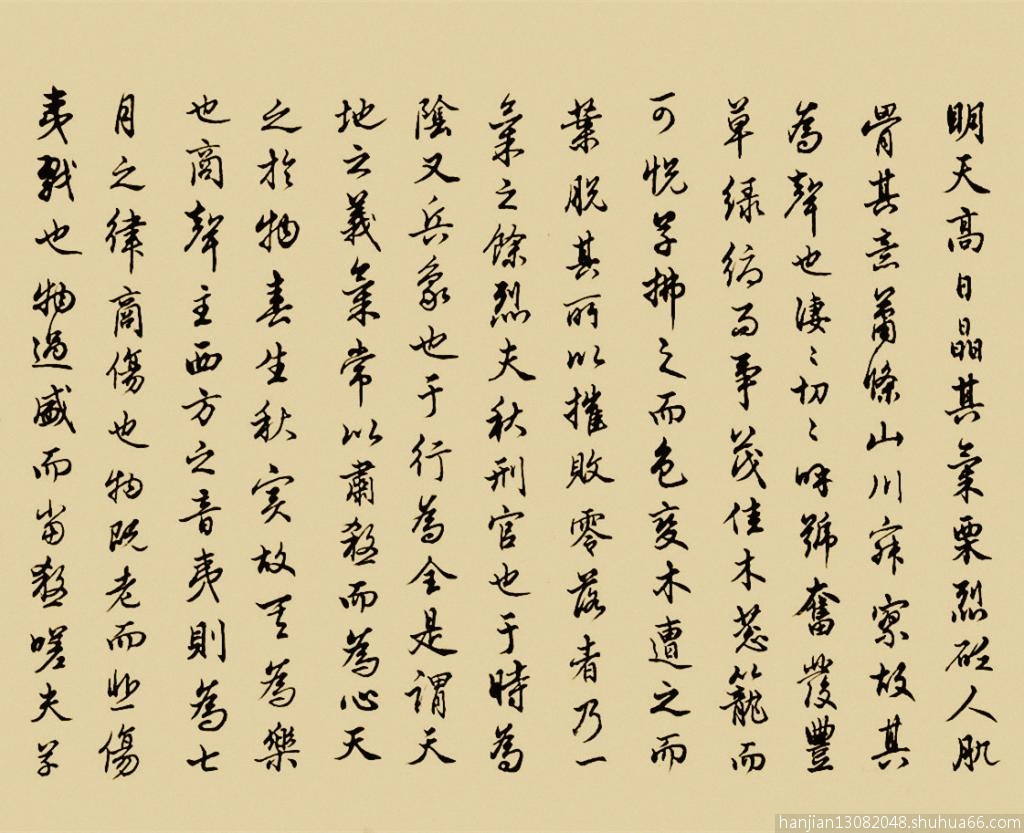 明天高日晶其氣栗烈砭人肌
骨其意蕭條山川寂寥故其
為聲也淒〻切〻呼號奮發豐
草綠縟而爭茂佳木蔥籠而
可悅草拂之而色變木遭之而
葉脫其所以摧敗零落者乃一
氣之餘烈夫秋刑官也于時為
陰又兵象也于行為金是謂天
地之義氣常以肅殺而為心天
之於物春生秋實故其為樂
也商聲主西方之音夷則為七
月之律商傷也物既老而悲傷
夷戮也物過盛而當殺嗟夫草
hanjian13082048.shuhua66.com